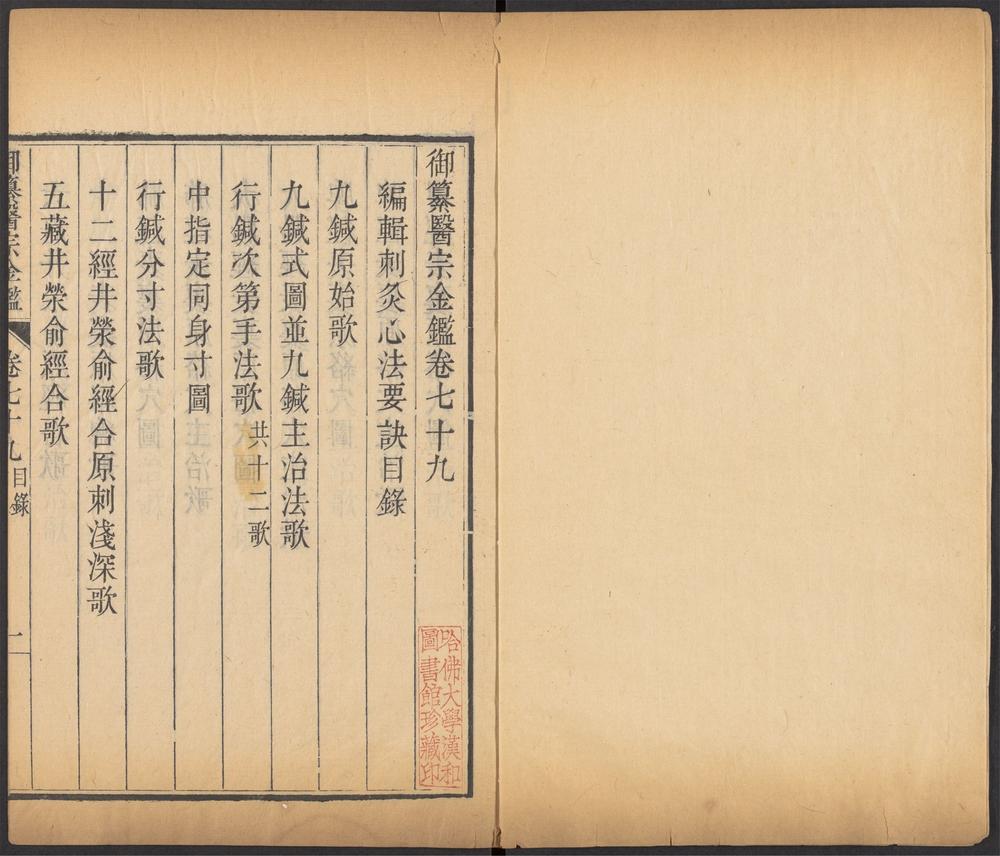 御纂醫宗金鑑卷七十九
編輯刺灸心法要訣目錄
九鍼原始歌
九鍼式圖並九鍼主治法歌
行鍼次第手法歌共十二歌
中指定同身寸圖
行鍼分寸法歌
十二經井滎俞經合原刺淺深歌
五藏井滎俞經合歌
御纂醫宗金鑑 卷七十九 目錄 一
哈佛大學漢和
圖書館珍藏印